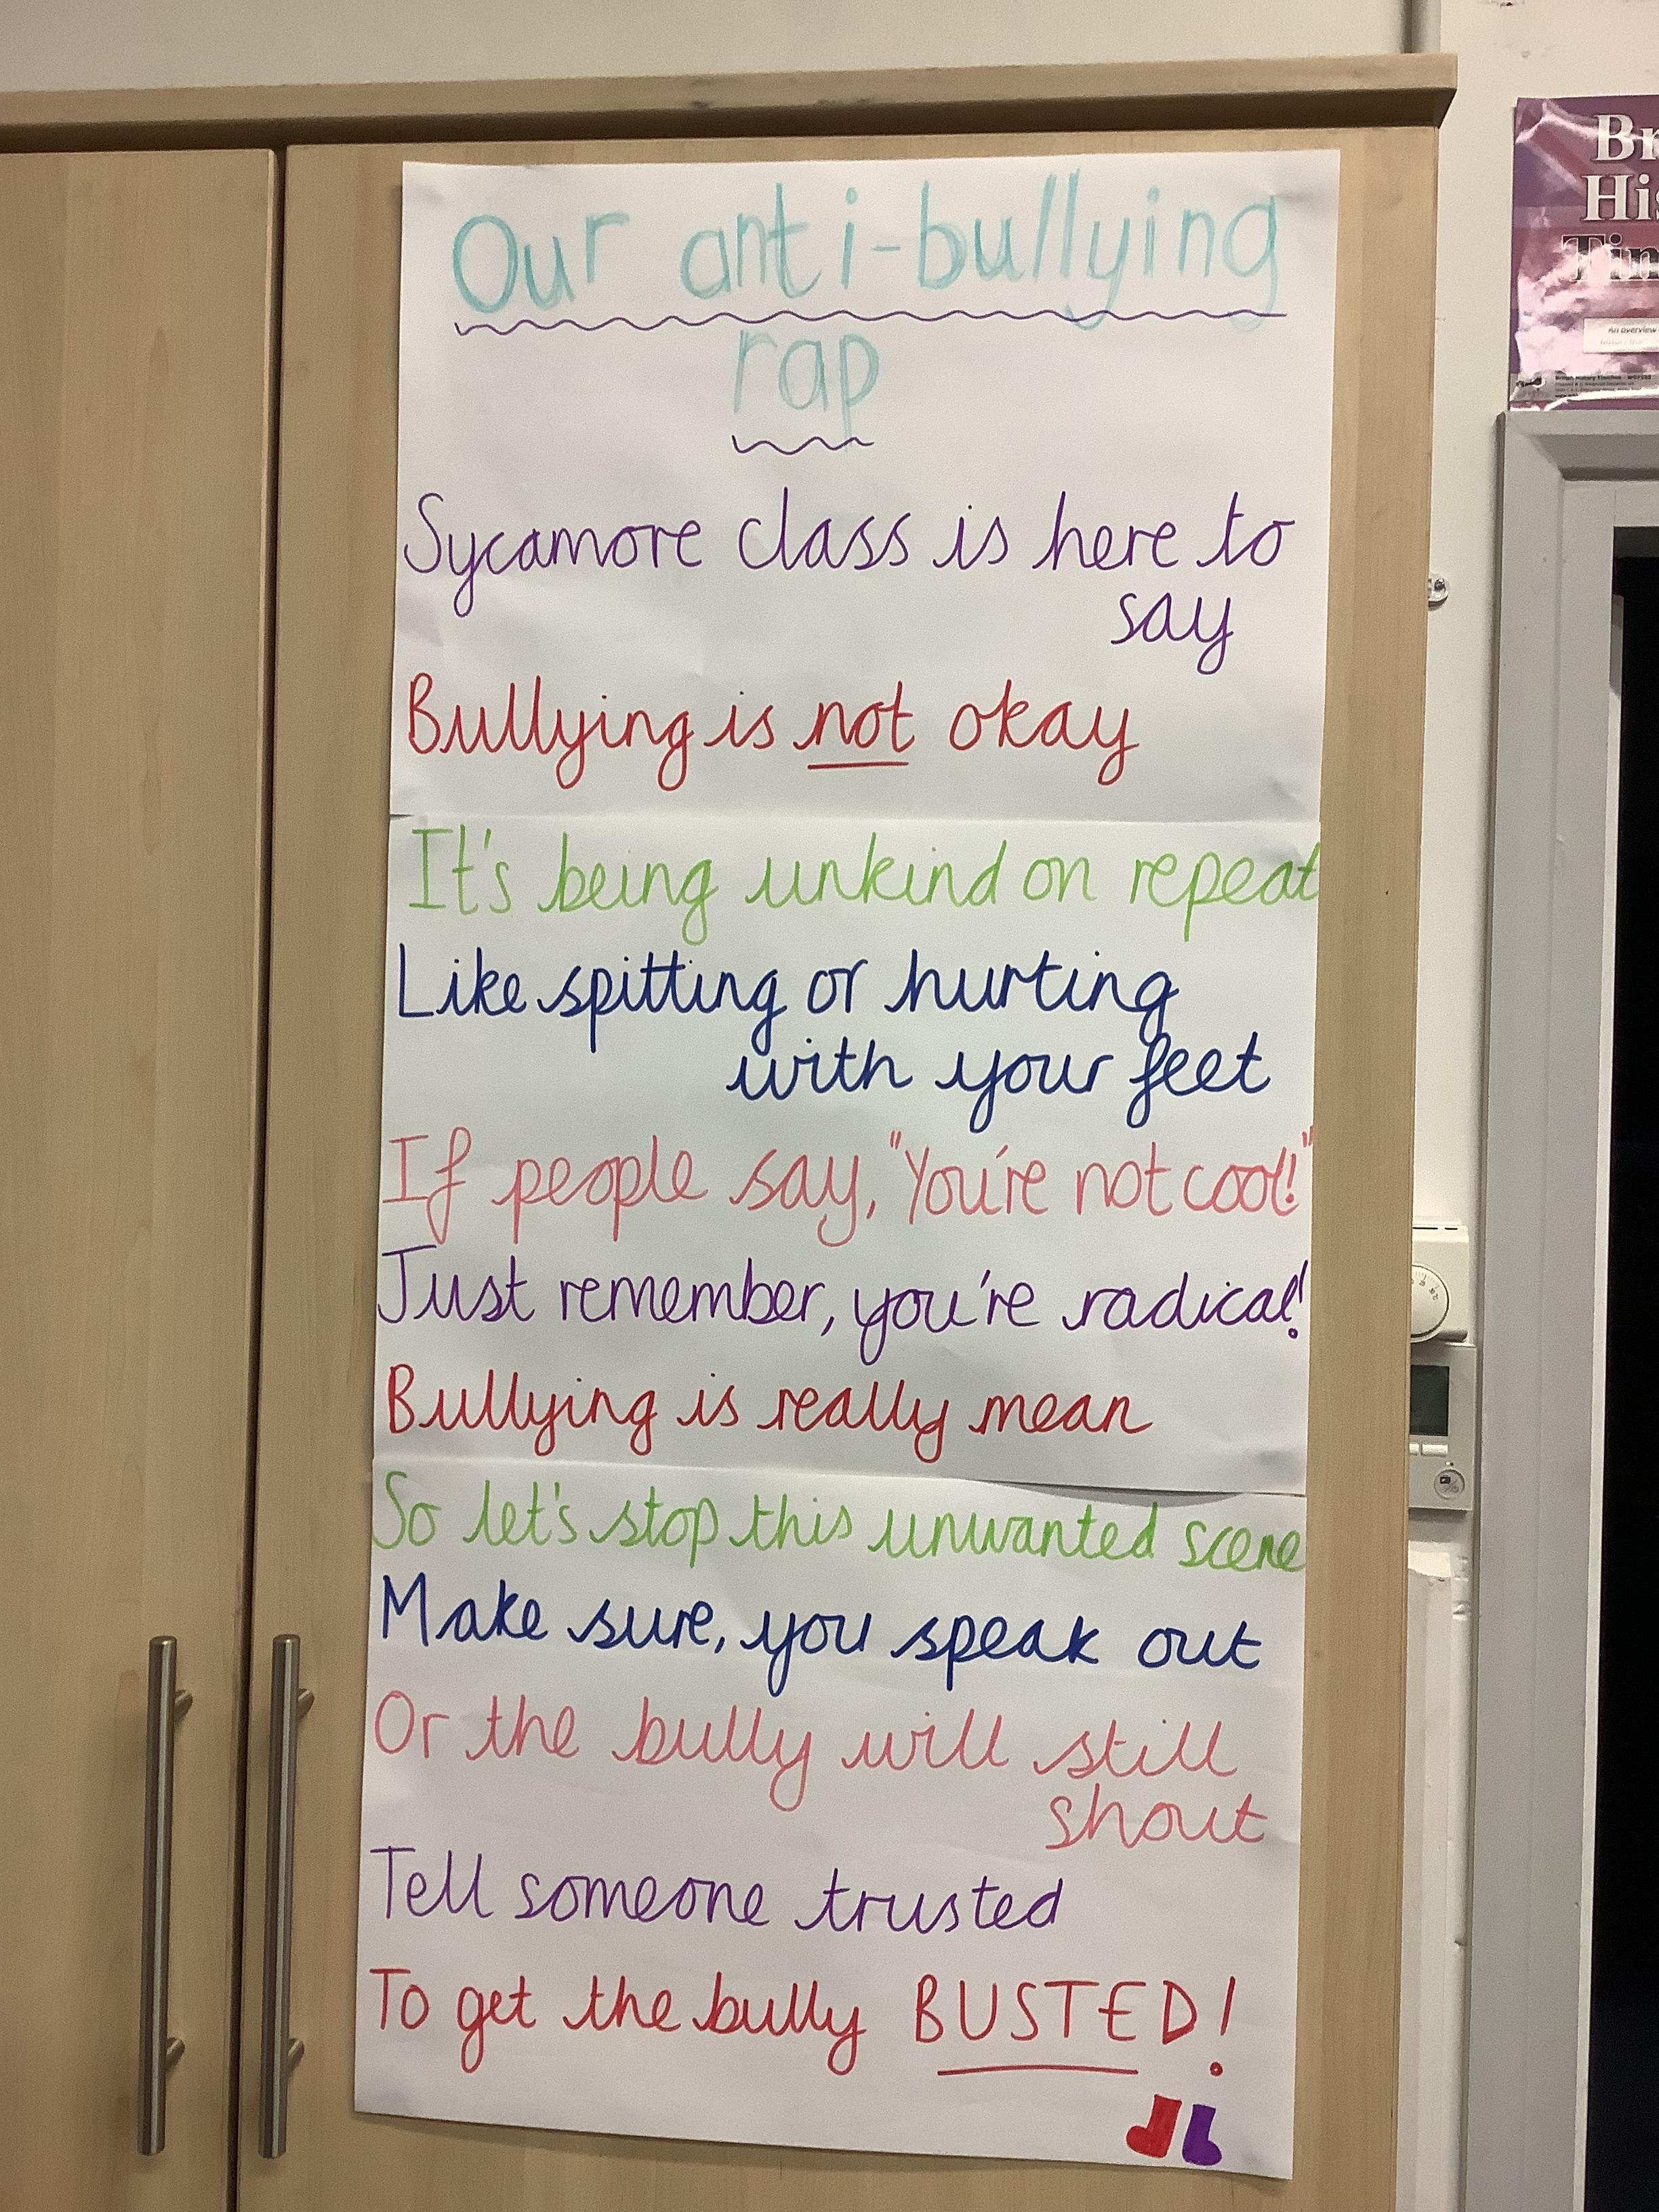 Our anti-bullying
rap
Sycamore class is here to
say
Bullying is not okay
It's being unkind on repeat
Like spitting or hurting
with your feet
If people say, "You're not cool!"
Just remember, you're radical!
Bullying is really mean
So let's stop this unwanted scene
Make sure, you speak out
Or the bully will still
shout
Tell someone trusted
To get the bully BUSTED!
Br
His
Tim
An overview